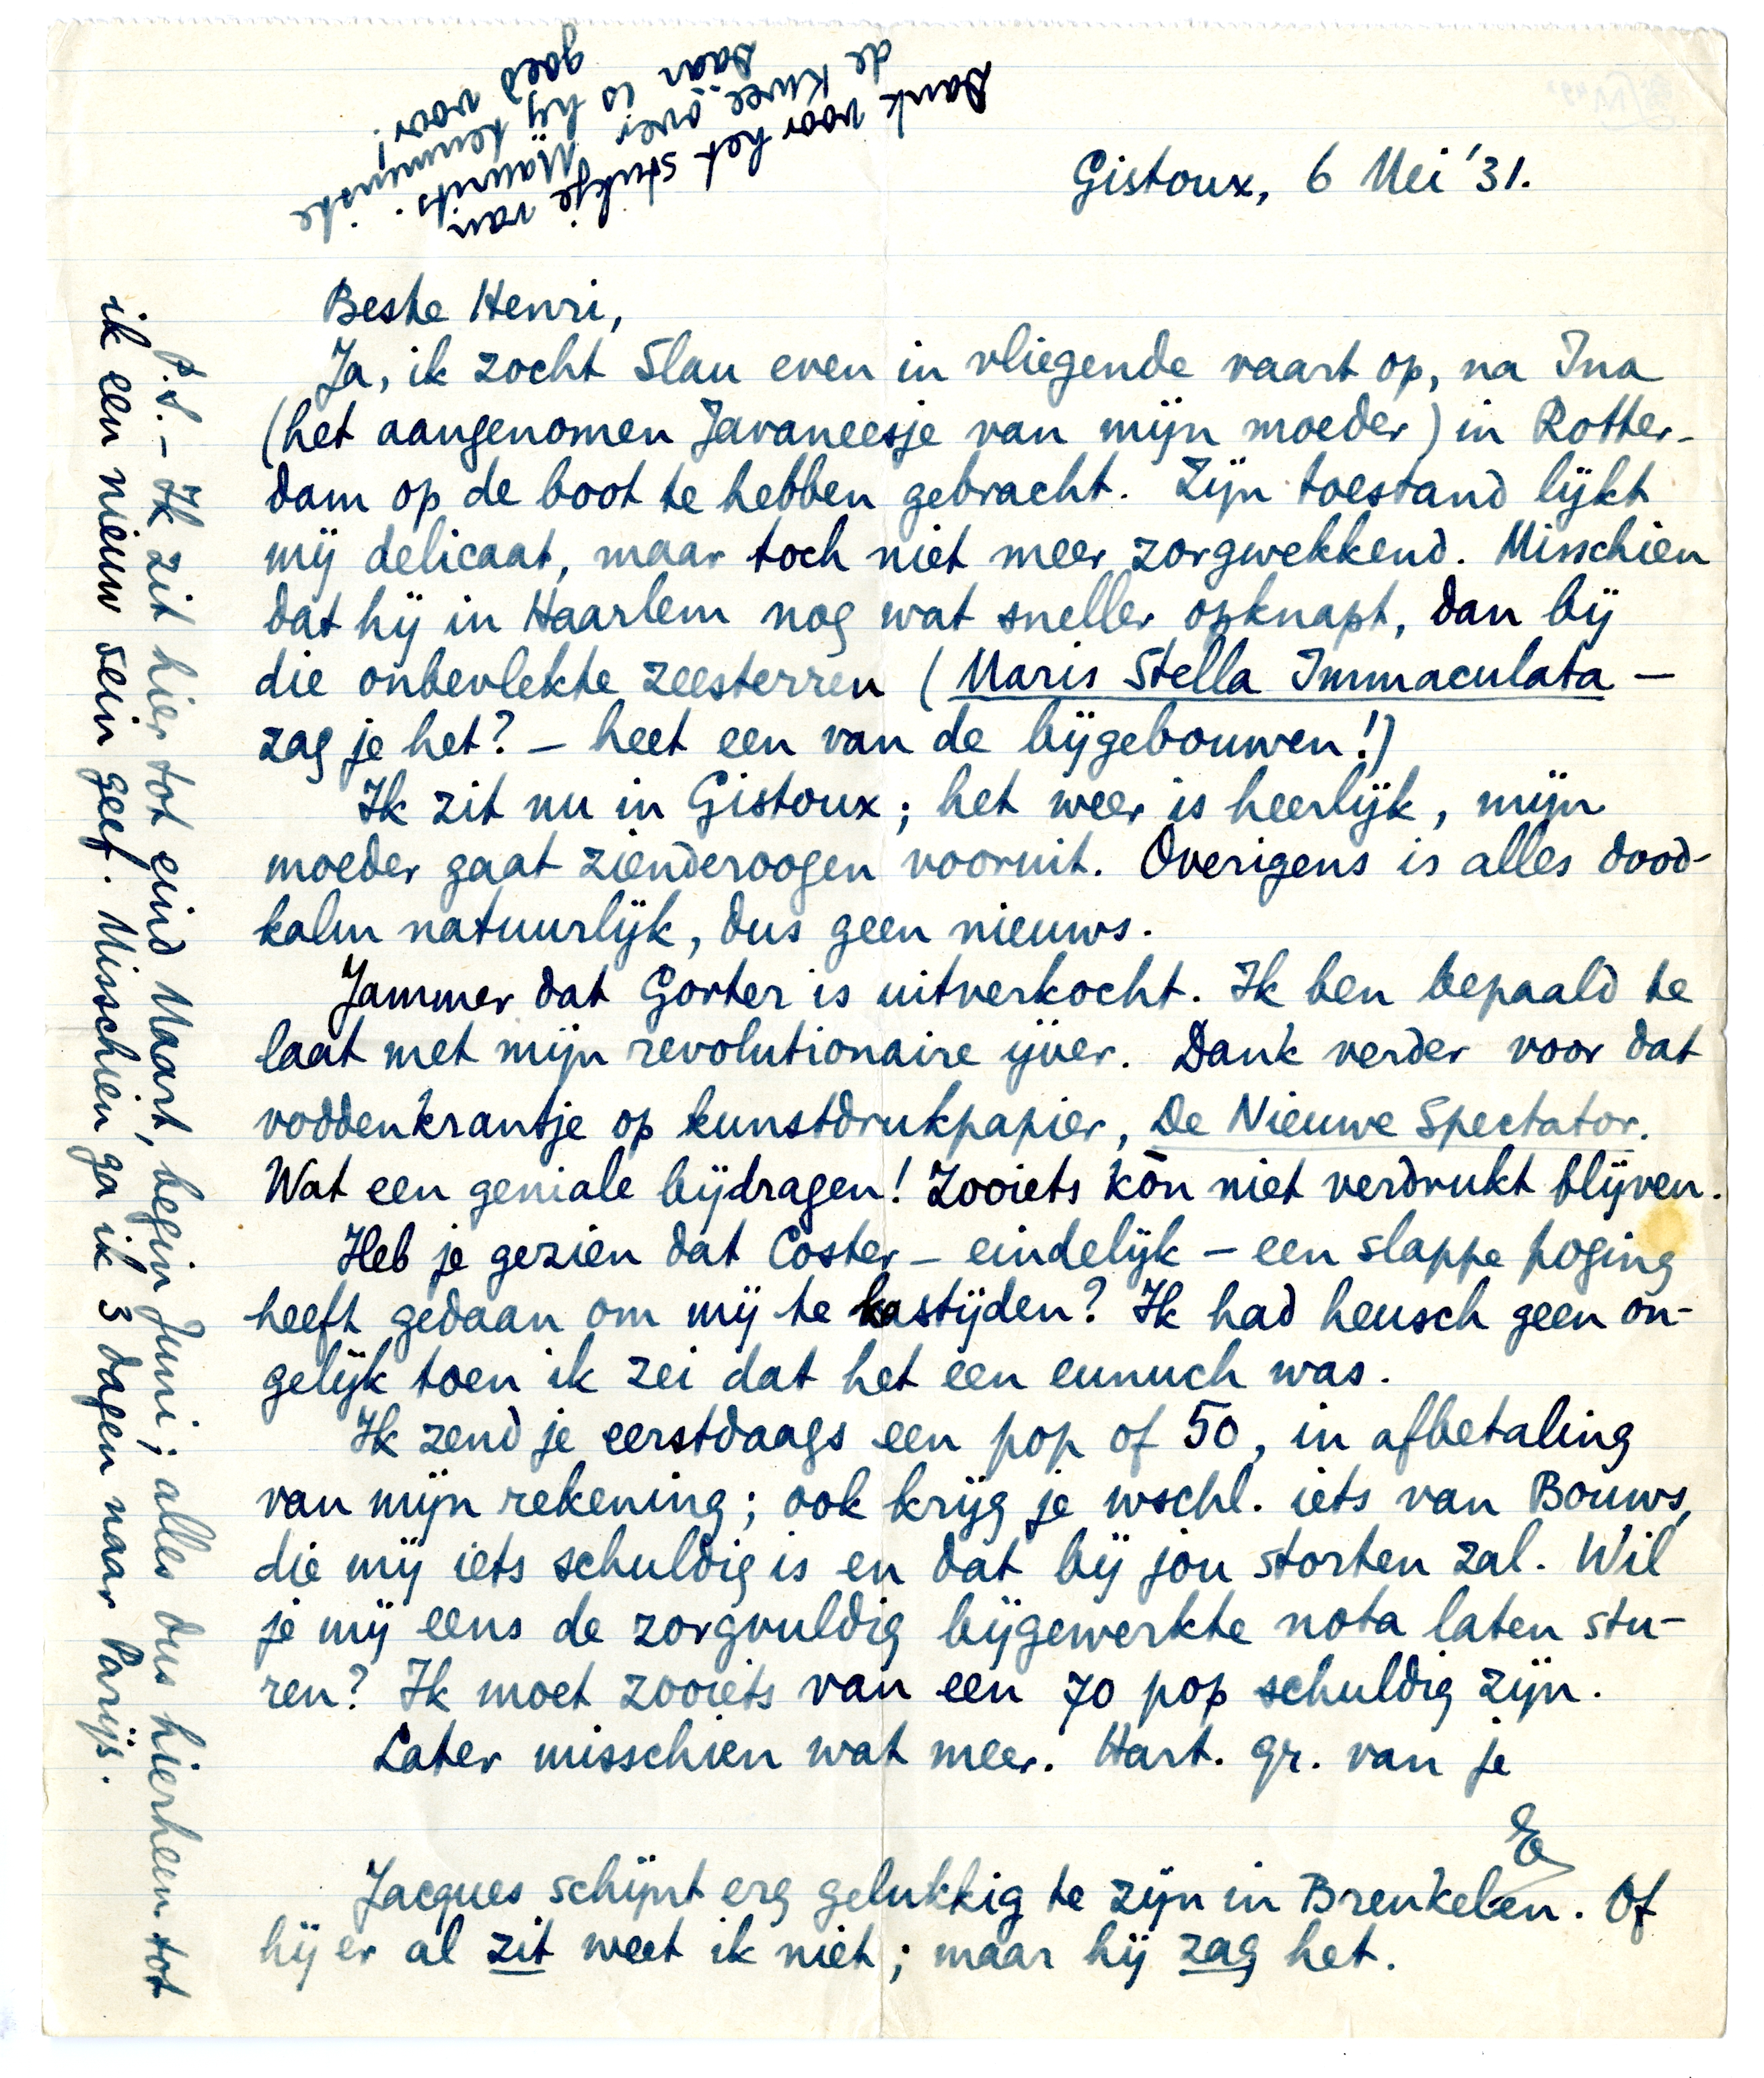 Gistoux, 6 Mei '31.
Beste Henri,
Ja, ik zocht Slau even in vliegende vaart op, na Ina
(het aangenomen Javaneesje van mijn moeder) in Rotter-
dam op de boot te hebben gebracht. Zijn toestand lijkt
mij delicaat, maar toch niet meer zorgwekkend. Misschien
dat hij in Haarlem nog wat sneller opknapt, dan bij
die onbevlekte zeesterren (Maris Stella Immaculata –
zag je het? – heet een van de bijgebouwen!)
Ik zit nu in Gistoux; het weer is heerlijk, mijn
moeder gaat zienderoogen vooruit. Overigens is alles dood-
kalm natuurlijk, dus geen nieuws.
Jammer dat Gorter is uitverkocht. Ik ben bepaald te
laat met mijn revolutionaire ijver. Dank verder voor dat
voddenkrantje op kunstdrukpapier, De Nieuwe Spectator.
Wat een geniale bijdragen! Zooiets kòn niet verdrukt blijven.
Heb je gezien dat Coster – eindelijk – een slappe poging
heeft gedaan om mij te kastijden? Ik had heusch geen on-
gelijk toen ik zei dat het een eunuch was.
Ik zend je eerstdaags een pop of 50, in afbetaling
van mijn rekening; ook krijg je wschl. iets van Bouws,
die mij iets schuldig is en dat bij jou storten zal. Wil
je mij eens de zorgvuldig bijgewerkte nota laten stu-
ren? Ik moet zooiets van een 70 pop schuldig zijn.
Later misschien wat meer. Hart. gr. van je
E
Jacques schijnt erg gelukkig te zijn in Breukelen. Of
hij er al zit weet ik niet; maar hij zag het.
P.S. – Ik zit hier tot eind Maart, begin Juni; alles dus hierheen tot
ik een nieuw sein geef. Misschien ga ik 3 dagen naar Parijs.
Dank voor het stukje van
de Kwee over Maurits.
Daar is hij tenminste
goed voor!